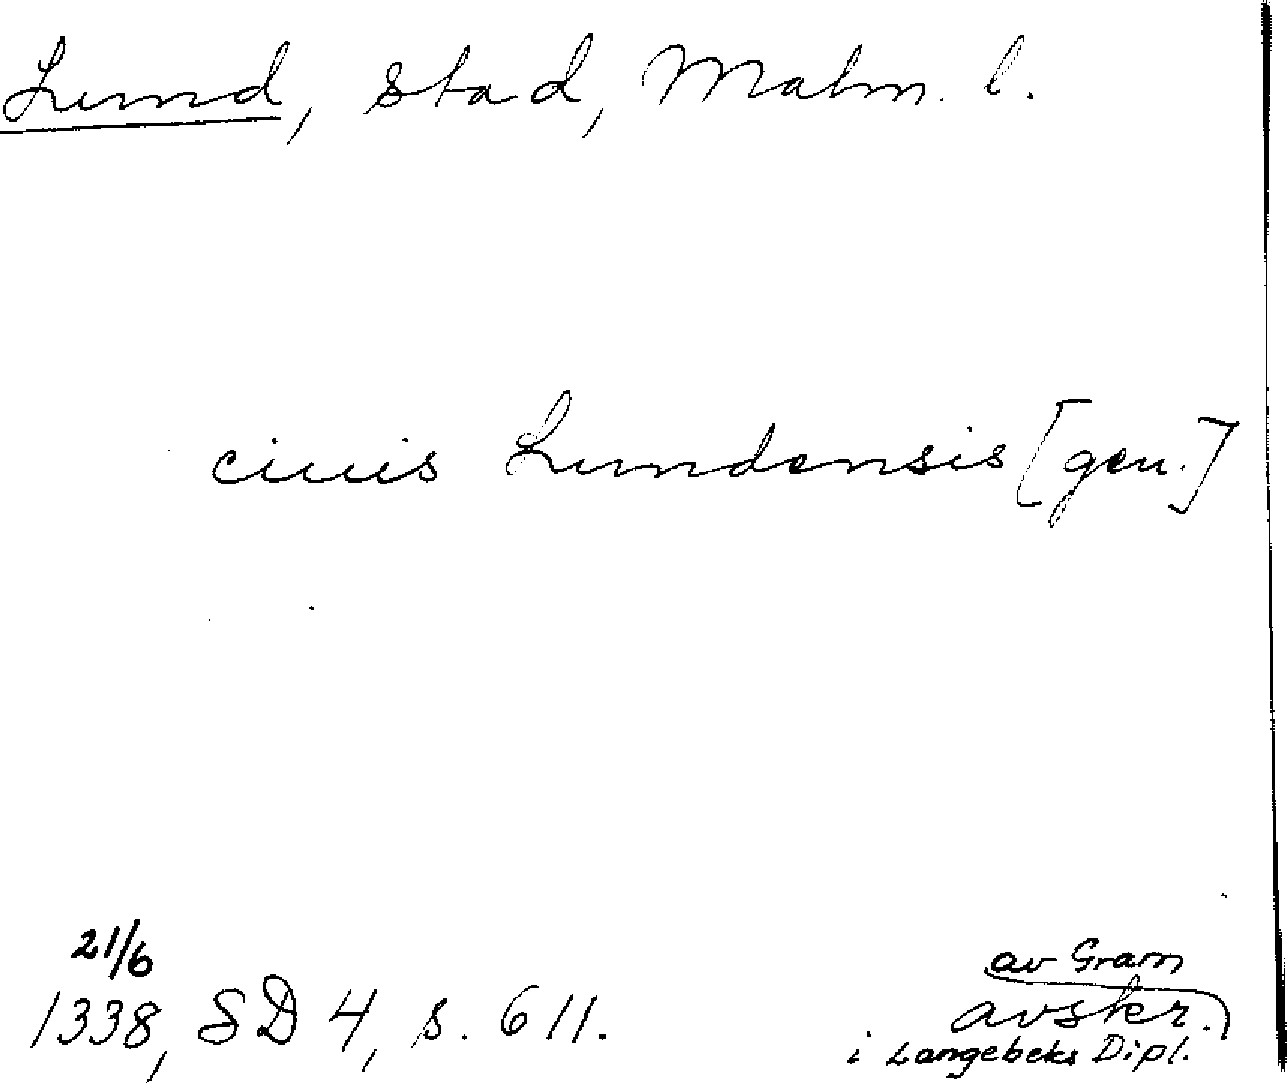 Lund, stad, Malm. l.
ciuis Lundensis [gen.]
21/6
1338, SD 4, s. 611.
av Gram
avskr.
i Langebeks Dipl.